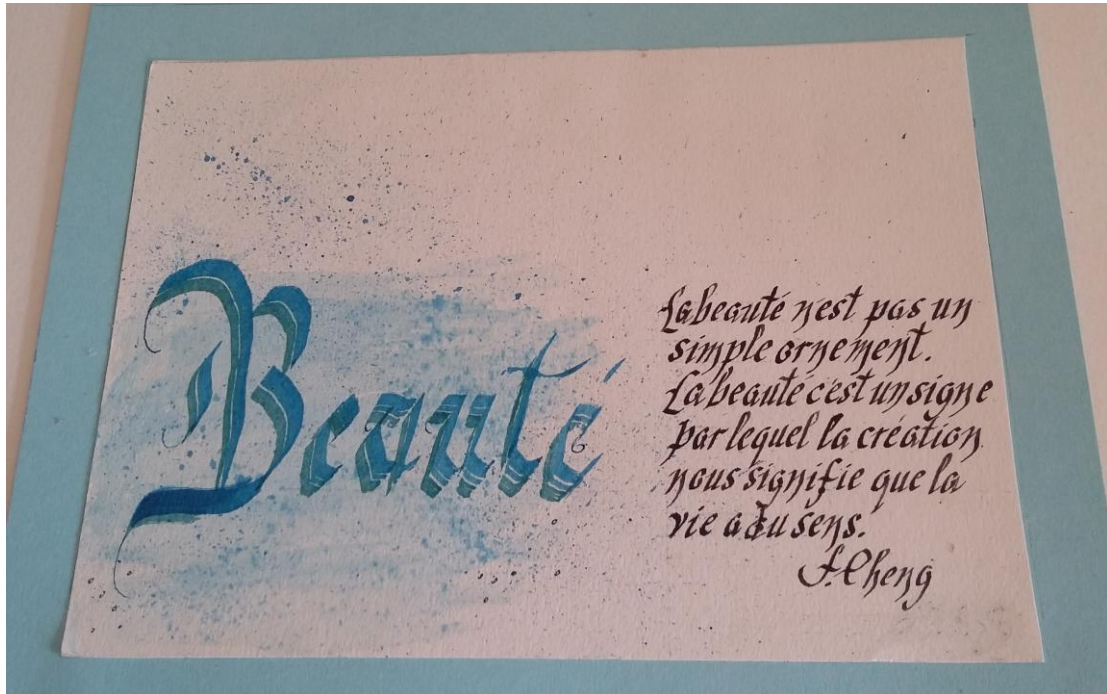 Beauté
La beauté n'est pas un
simple ornement.
La beauté c'est un signe
par lequel la création
nous signifie que la
vie a du sens.
F. Cheng